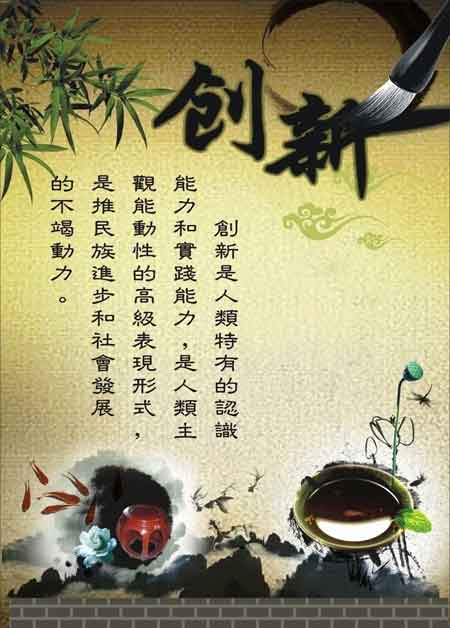 创新
創新是人類特有的認識
能力和實踐能力，是人類主
觀能動性的高級表現形式，
是推民族進步和社會發展
的不竭動力。